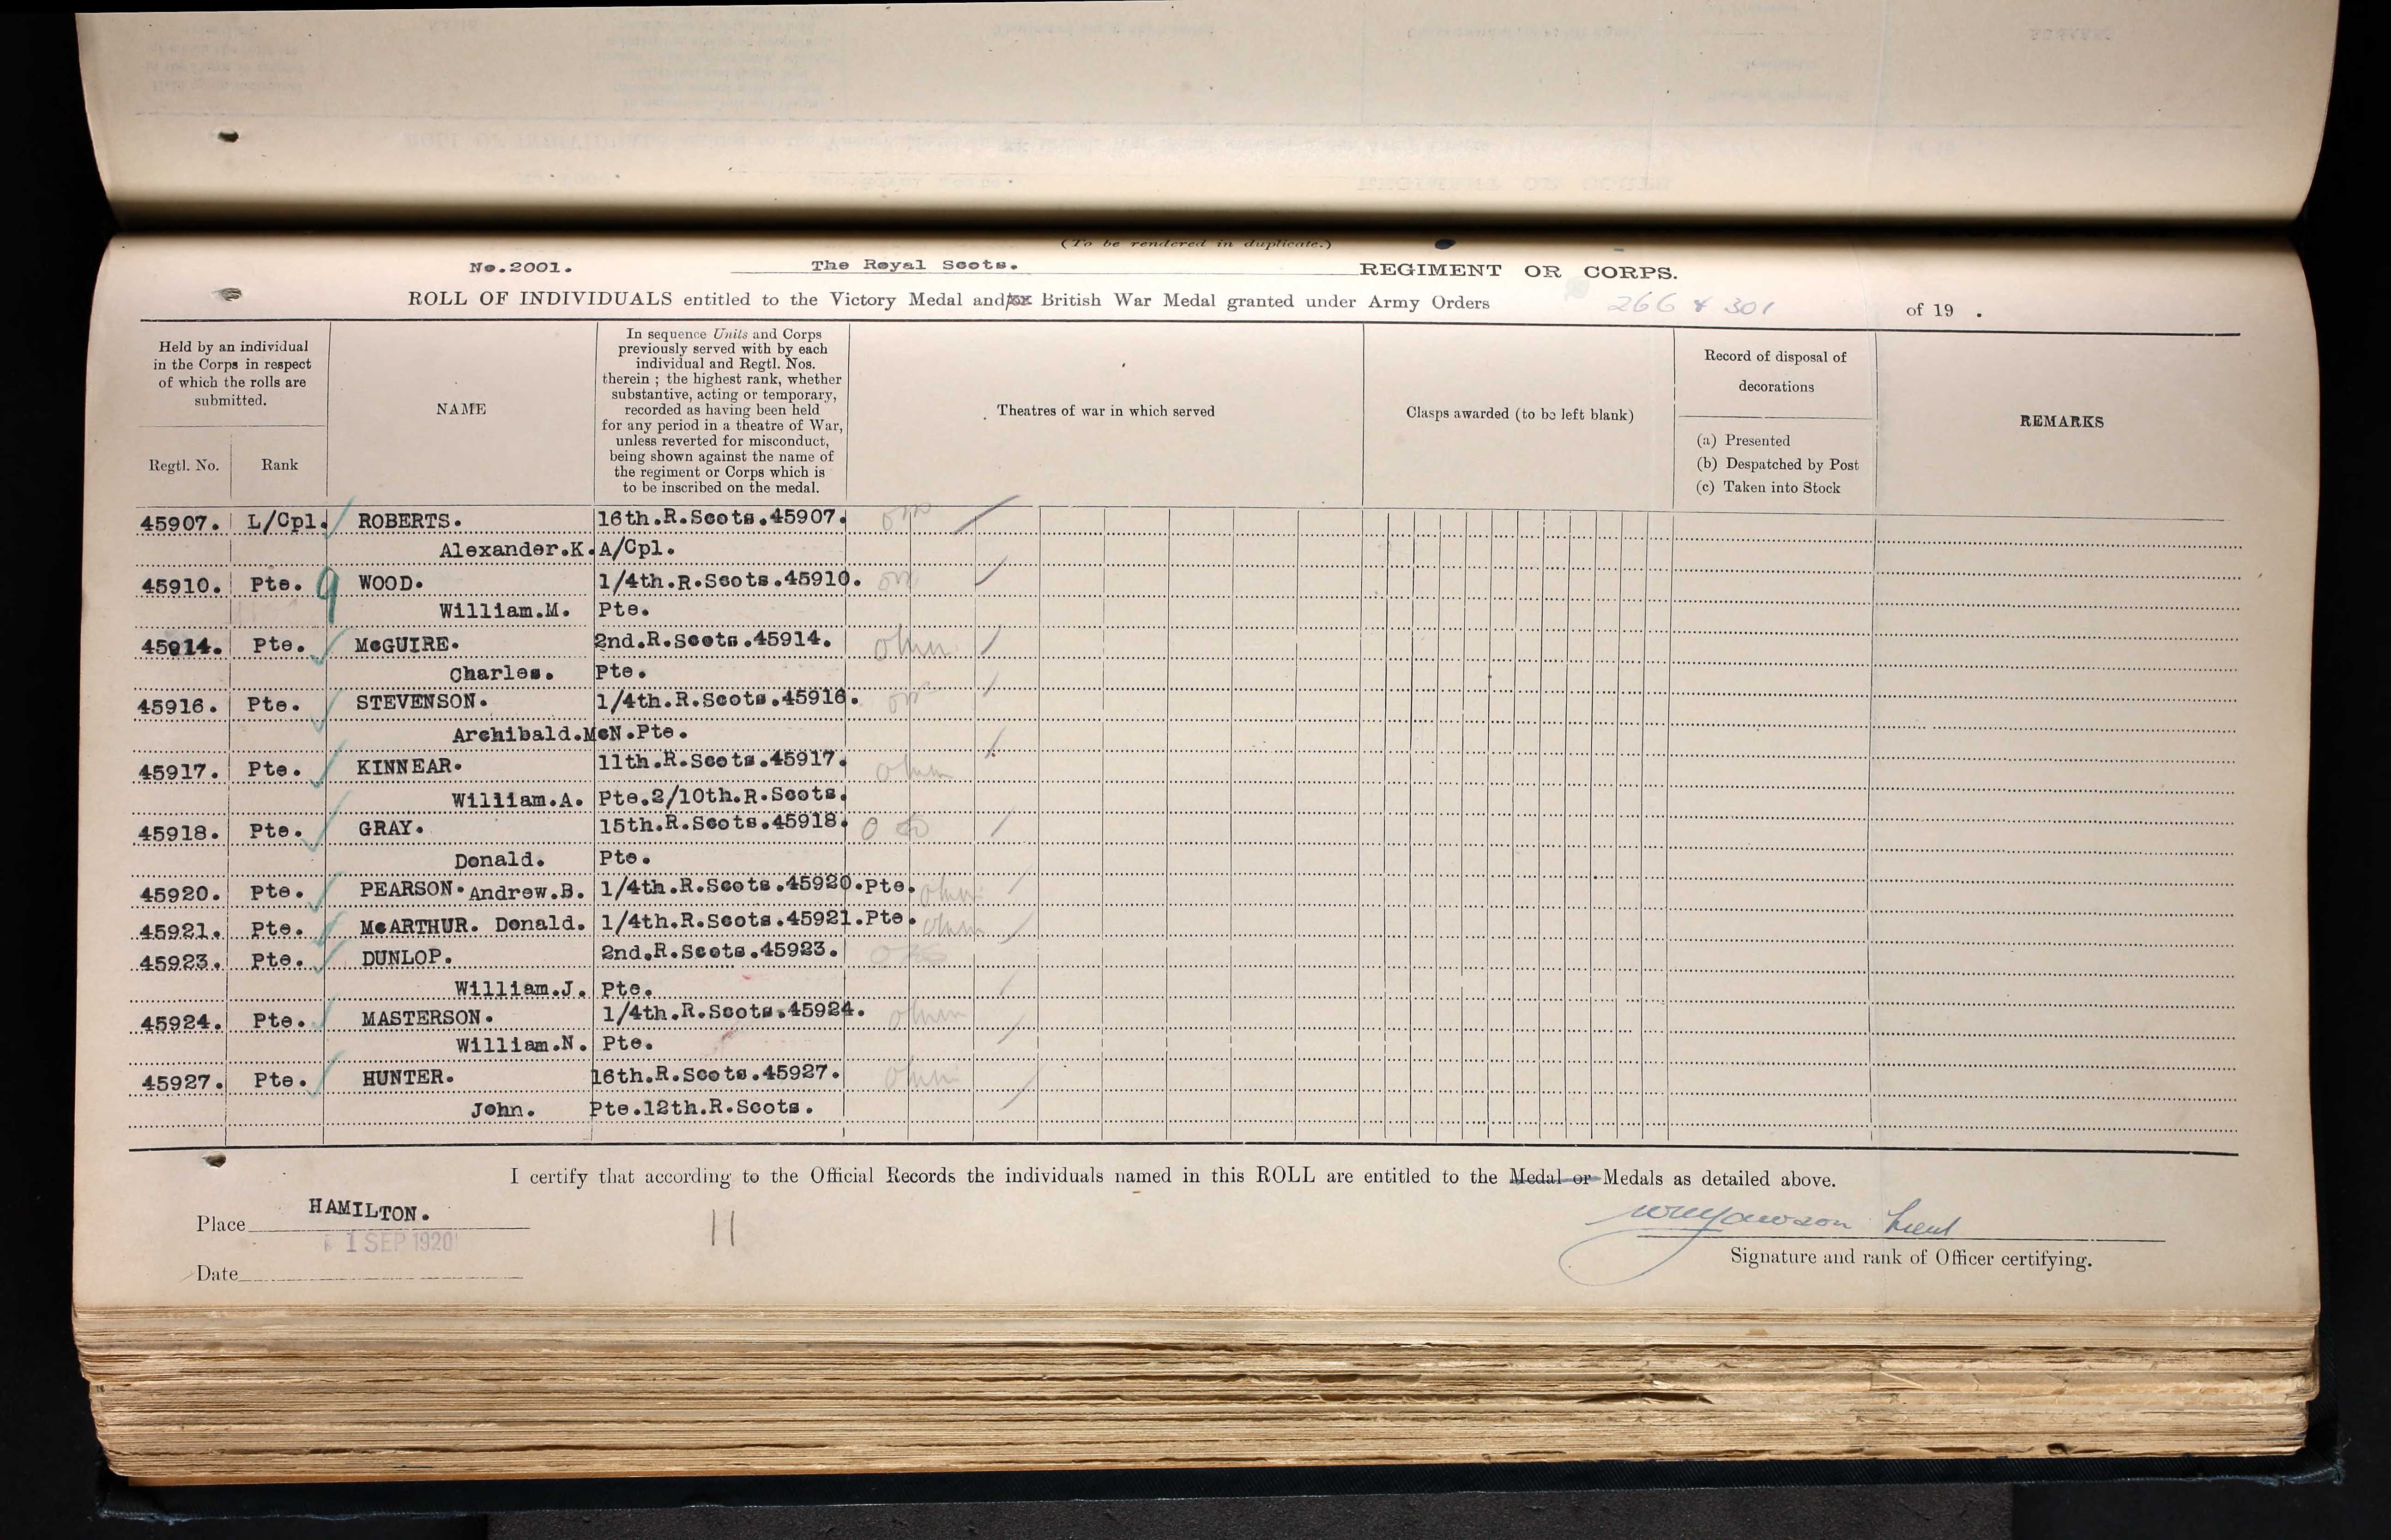 (To be rendered in duplicate.)
No.2001. The Royal Scots. REGIMENT OR CORPS.
ROLL OF INDIVIDUALS entitled to the Victory Medal and/or British War Medal granted under Army Orders 266 & 301 of 19 .
Held by an individual
in the Corps in respect
of which the rolls are
submitted.
Regtl. No. Rank
NAME
In sequence Units and Corps
previously served with by each
individual and Regtl. Nos.
therein ; the highest rank, whether
substantive, acting or temporary,
recorded as having been held
for any period in a theatre of War,
unless reverted for misconduct,
being shown against the name of
the regiment or Corps which is
to be inscribed on the medal.
Theatres of war in which served
Clasps awarded (to be left blank)
Record of disposal of
decorations
(a) Presented
(b) Despatched by Post
(c) Taken into Stock
REMARKS
45907. L/Cpl. ROBERTS. 16th.R.Scots.45907.
Alexander.K. A/Cpl.
45910. Pte. WOOD. 1/4th.R.Scots.45910.
William.M. Pte.
45914. Pte. McGUIRE. 2nd.R.Scots.45914.
Charles. Pte.
45916. Pte. STEVENSON. 1/4th.R.Scots.45916.
Archibald.McN.Pte.
45917. Pte. KINNEAR. 11th.R.Scots.45917.
William.A. Pte.2/10th.R.Scots.
45918. Pte. GRAY. 15th.R.Scots.45918.
Donald. Pte.
45920. Pte. PEARSON. Andrew.B. 1/4th.R.Scots.45920.Pte.
45921. Pte. McARTHUR. Donald. 1/4th.R.Scots.45921.Pte.
45923. Pte. DUNLOP. 2nd.R.Scots.45923.
William.J. Pte.
45924. Pte. MASTERSON. 1/4th.R.Scots.45924.
William.N. Pte.
45927. Pte. HUNTER. 16th.R.Scots.45927.
John. Pte.12th.R.Scots.
I certify that according to the Official Records the individuals named in this ROLL are entitled to the Medal or Medals as detailed above.
Place HAMILTON.
1 SEP 1920
11
Lieut
Date
Signature and rank of Officer certifying.